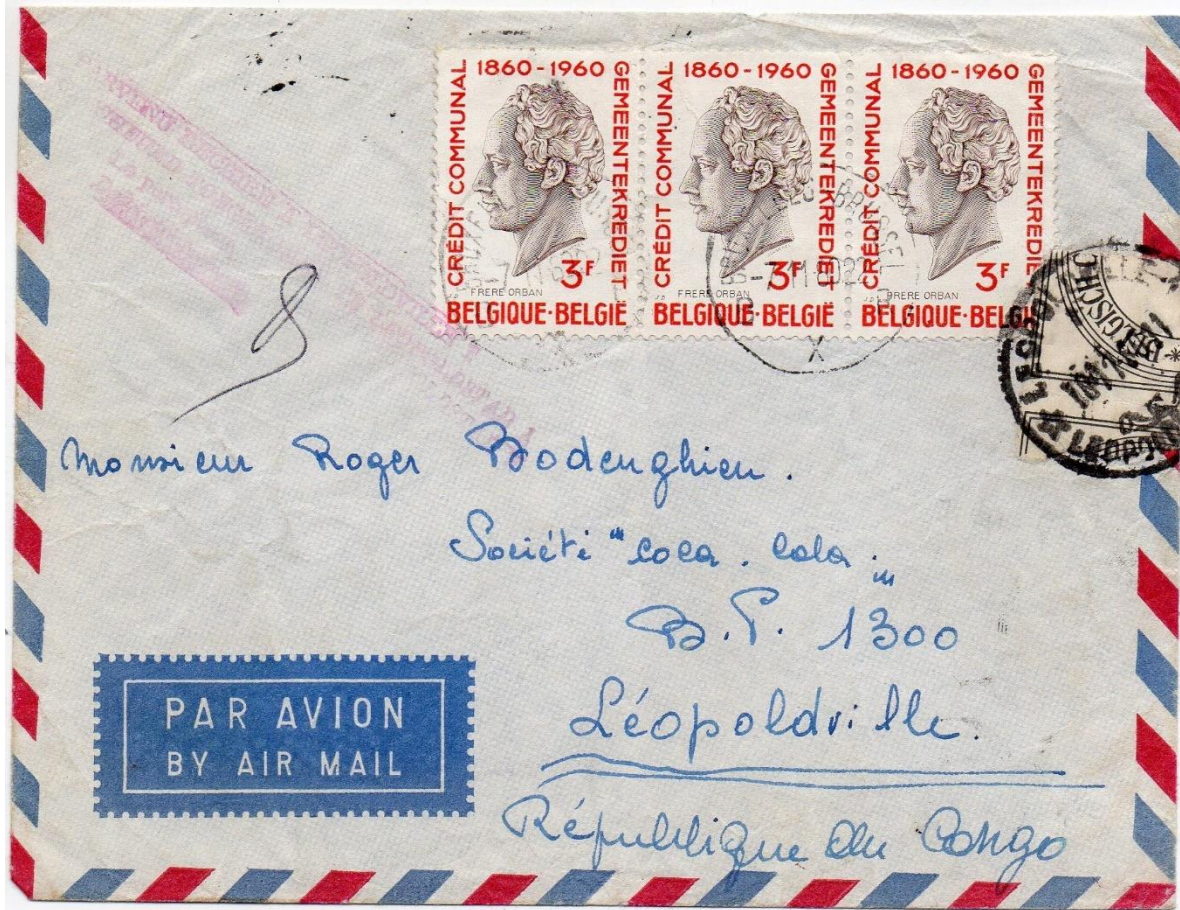 CRÉDIT COMMUNAL 1860-1960 GEMEENTEKREDIET
3F
FRERE ORBAN
BELGIQUE·BELGIË
CRÉDIT COMMUNAL 1860-1960 GEMEENTEKREDIET
3F
FRERE ORBAN
BELGIQUE·BELGIË
CRÉDIT COMMUNAL 1860-1960 GEMEENTEKREDIET
3F
FRERE ORBAN
BELGIQUE·BELGIË
-7.11.60.22
X
BELGISCH
Monsieur Roger Bodenghien.
Société "Coca. Cola."
B.P. 1300
Léopoldville.
République du Congo
PAR AVION
BY AIR MAIL